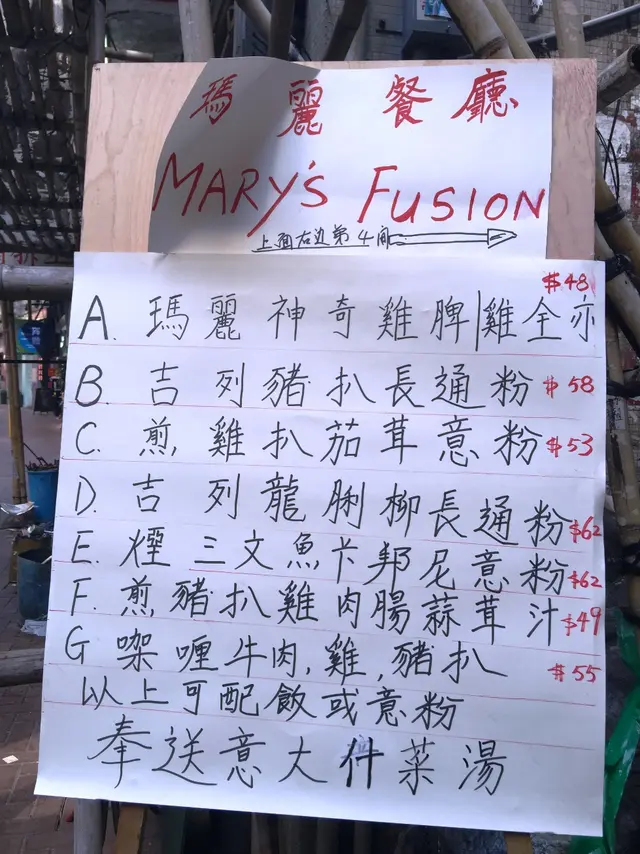 瑪麗餐廳
MARY'S FUSION
上面右边第4间
$48
A. 瑪麗神奇雞脾|雞全亦
B. 吉列豬扒長通粉 $58
C. 煎雞扒茄茸意粉 $53
D. 吉列龍脷柳長通粉 $62
E. 煙三文魚卡邦尼意粉 $62
F. 煎豬扒雞肉腸蒜茸汁 $49
G 咖喱牛肉,雞,豬扒 $55
以上可配飯或意粉
奉送意大什菜湯